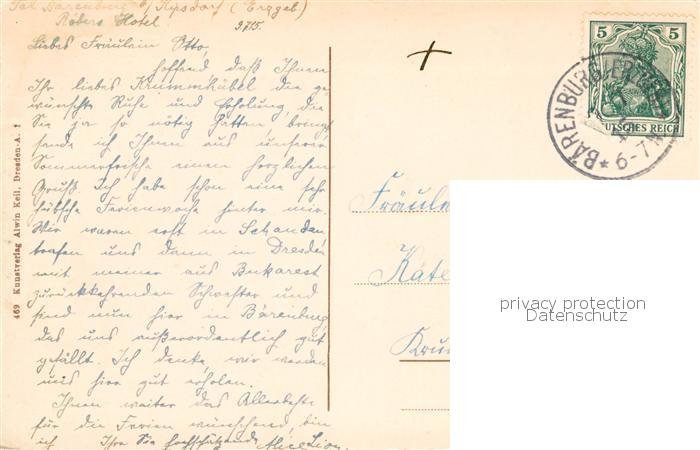 Bärenburg b/ Kipsdorf (Erzgeb.)
Röbers Hotel.
Liebes Fräulein Otto,
hoffend daß Ihnen
Ihr liebes Krummhübel die ge-
wünschte Ruhe und Erholung, die
Sie ja so nötig hatten, bringt
sende ich Ihnen aus unserer
Sommerfrische einen herzlichen
Gruß. Ich habe schon eine sehr
hübsche Ferienwoche hinter mir.
Wir waren erst in Schandau
trafen uns dann in Dresden
mit meiner aus Bukarest
zurückkehrenden Schwester und
sind nun hier in Bärenburg,
das uns außerordentlich gut
gefällt. Ich denke, wir werden
uns hier gut erholen.
Ihnen weiter das Allerbeste
für die Ferien wünschend, bin
ich Ihre Sie hochschätzende Alice Lion.
469 Kunstverlag Alwin Keil, Dresden-A. 1
5 5
DEUTSCHES REICH
BÄRENBURG (ERZGEB.)
* 6-7 N
Fräulein
Käte
Kru
privacy protection
Datenschutz